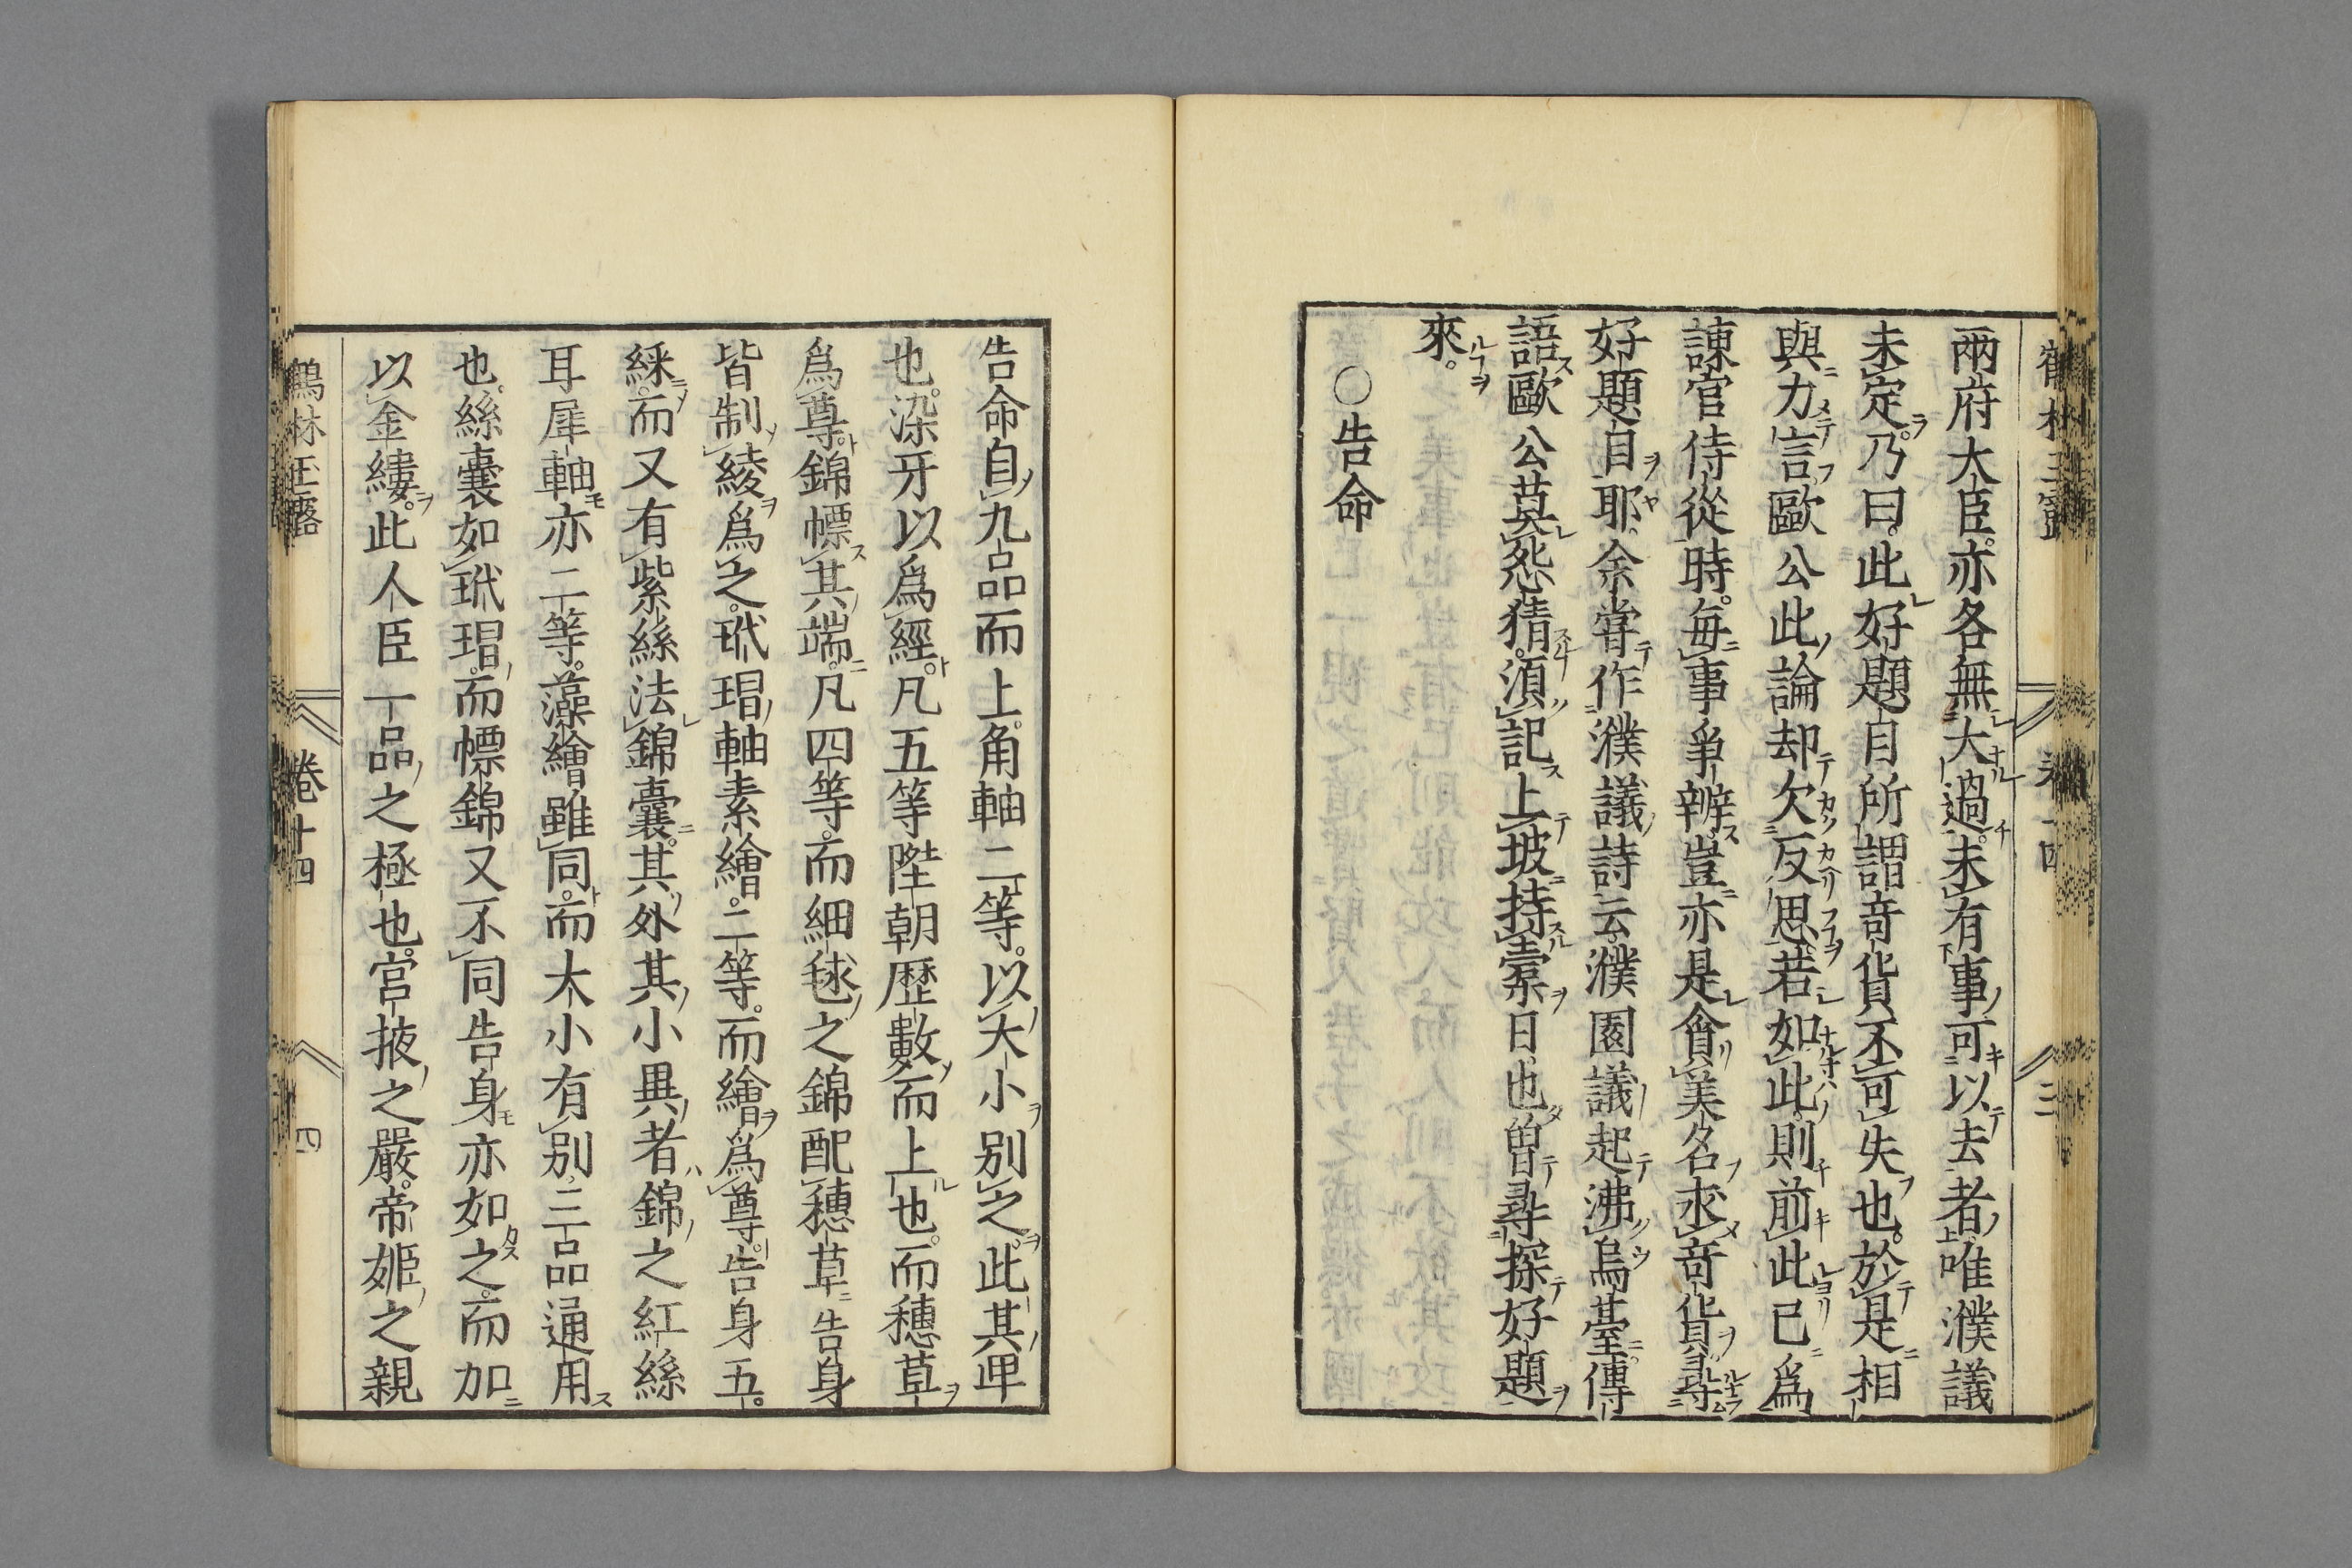 兩府大臣亦各無大過未有事可以去者唯濮議
未定乃曰此好題目所謂奇貨不可失也於是相
與力言歐公此論却欠反思若如此則前此已爲
諫官侍從時每事爭辨豈亦是貪美名求奇貨尋
好題目耶余嘗作濮議詩云濮園議起沸烏臺傳
語歐公莫怨猜須記上坡持槖日也曽尋探好題
來。
〇告命
告命自九品而上角軸二等。以大小別之此其卑
也。染牙以爲經。凡五等陛朝歷數而上也。而穗草
爲尊。錦幖其端。凡四等。而細毬之錦配穗草告身
皆制綾爲之。玳瑁軸素繪。二等。而繪爲尊。告身五。
綵。而又有紫絲法錦囊。其外其小異者錦之紅絲
耳犀軸亦二等。藻繪雖同。而大小有別三品通用
也。絲囊如玳瑁。而幖錦又不同告身亦如之。而加
以金縷。此人臣一品之極也。宮掖之嚴。帝姬之親
鶴林玉露 卷十四 四